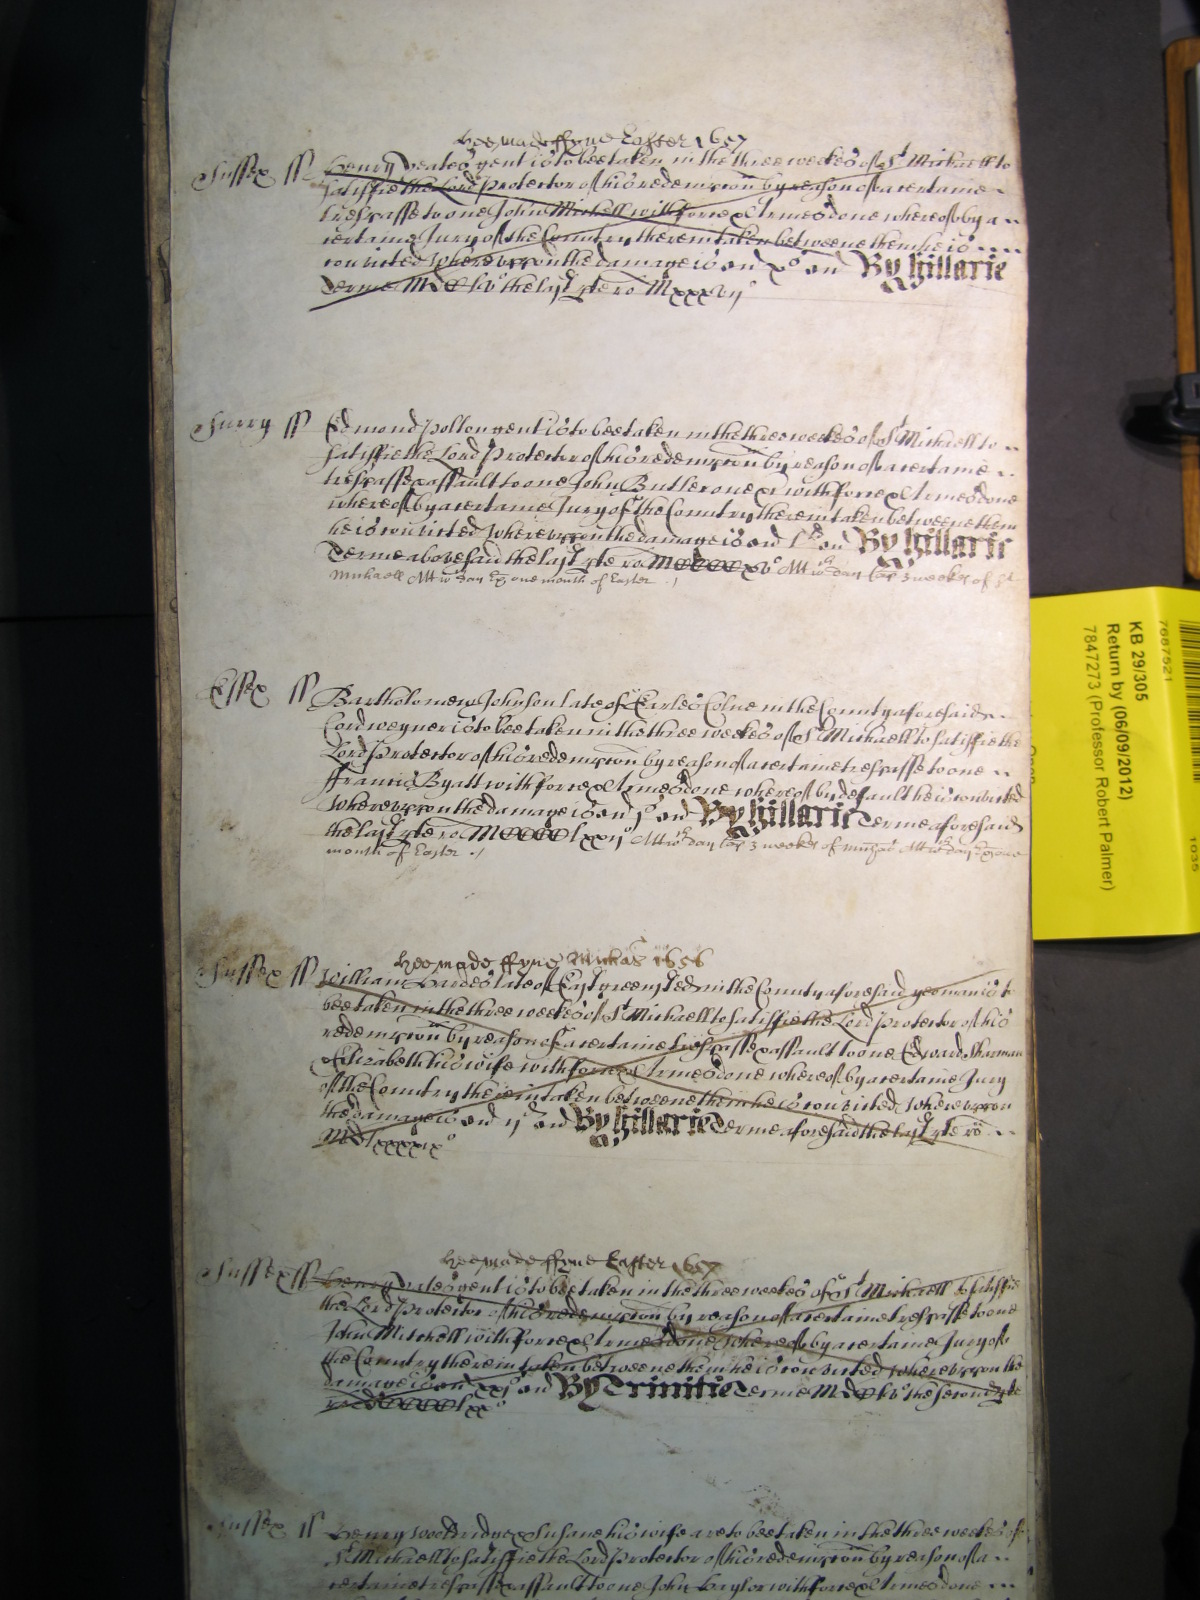 hee made ffyne Easter 1657
Sussex ss Henry Yates gent is to bee taken in the three weekes of St Michaell to
satisfie the Lord Protector of his redempcon by reason of a certaine
trespasse to one John Michell with force & Armes done whereof by a
certaine Jury of the Country therein taken betweene them he is
convicted Whereuppon the damage is and xs and By Hillarie
Terme the last ro
Surry ss Edmond gent is to bee taken in the three weekes of St Michaell to
satisfie the Lord Protector of his redempcon by reason of a certaine
trespasse & assault to one John Butler one &c with force & Armes done
whereof by a certaine Jury of the Country therein taken betweene them
he is convicted Whereuppon the damage is and and By Hillarie
Terme abovesaid the last ro Att wch day 3 weekes of St
Michaell Att wch day one month of Easter
Essex ss Bartholomew Johnson late of Earles Colne in the County aforesaid
Cordweyner is to bee taken in the three weekes of St Michaell to satisfie the
Lord Protector of his redempcon by reason of a certaine trespasse to one
ffrancis Byatt with force & Armes done whereof by default he is convicted
Whereuppon the damage is and and By Hillarie Terme aforesaid
the last ro Att wch day 3 weekes of Att wch day one
month of Easter
hee made ffyne Michas 1656
Sussex ss William late of East greensted in the County aforesaid yeoman is to
bee taken in the three weekes of St Michaell to satisfie the Lord Protector of his
redempcon by reason of a certaine trespasse & assault to one Edward Sharman
& Elizabeth his wife with force & Armes done whereof by a certaine Jury
of the Country therein taken betweene them he is convicted Whereuppon
the damage is and and By Hillarie Terme aforesaid the last ro
hee made ffyne Easter 1657
Sussex ss Henry Yates gent is to bee taken in the three weekes of St Michaell to satisfie
the Lord Protector of his redempcon by reason of a certaine trespasse to one
John Mitchell with force & Armes done Whereof by a certaine Jury of
the Country therein taken betweene them he is convicted Whereuppon the
damage is and and By Trinitie Terme the second
Sussex ss Henry Woodridge & Susane his wife are to bee taken in the three weekes of
St Michaell to satisfie the Lord Protector of his redempcon by reason of a
certaine trespasse & assault to one John with force & Armes done
7687521
KB 29/305
Return by (06/09/2012)
7847273 (Professor Robert Palmer)
1035